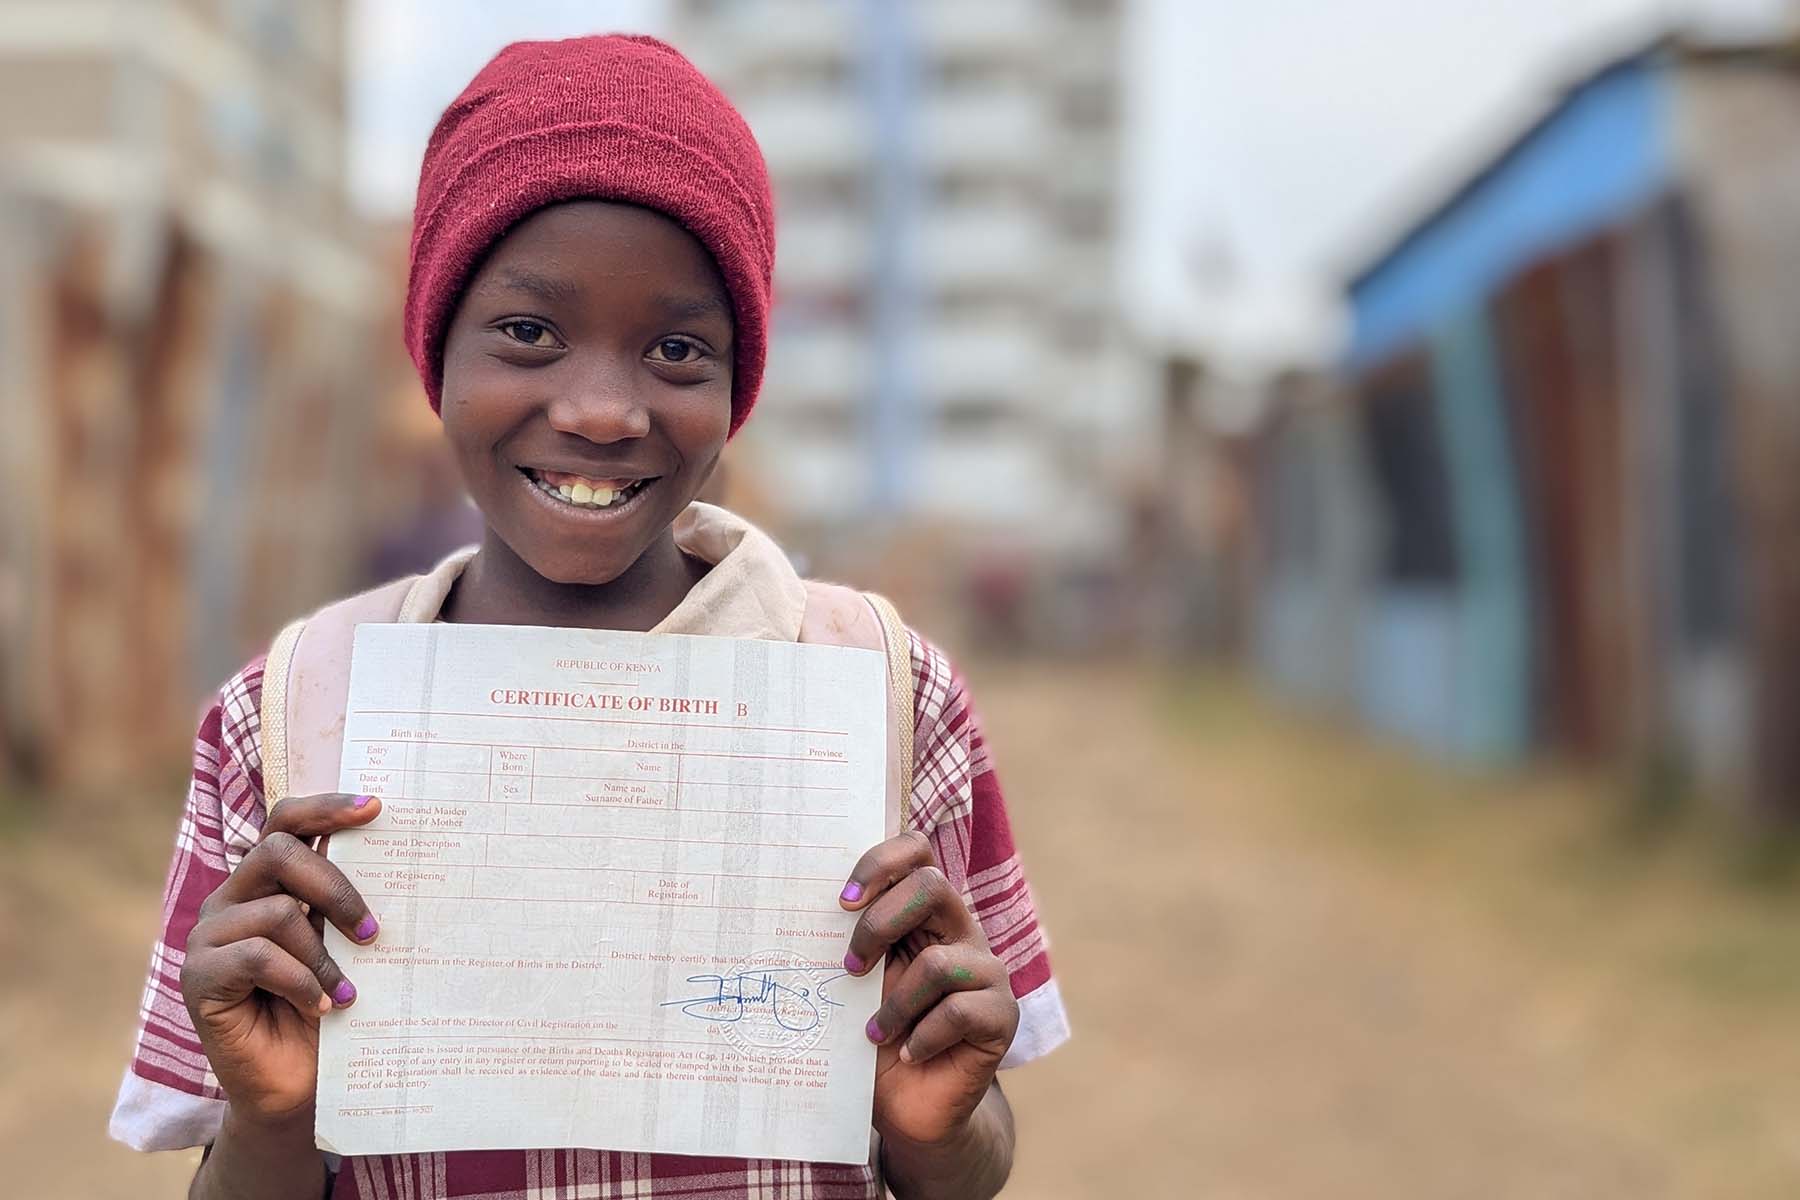 REPUBLIC OF KENYA
CERTIFICATE OF BIRTH B
Birth in the District in the Province
Entry No. Where Born Name
Date of Birth Sex Name and Surname of Father
Name and Maiden Name of Mother
Name and Description of Informant
Name of Registering Officer Date of Registration
I,
District/Assistant
Registrar for District, hereby certify that this certificate is compiled
from an entry/return in the Register of Births in the District.
District/Assistant/Registrar
Given under the Seal of the Director of Civil Registration on the day
This certificate is issued in pursuance of the Births and Deaths Registration Act (Cap. 149) which provides that a
certified copy of any entry in any register or return purporting to be sealed or stamped with the Seal of the Director
of Civil Registration shall be received as evidence of the dates and facts therein contained without any or other
proof of such entry.